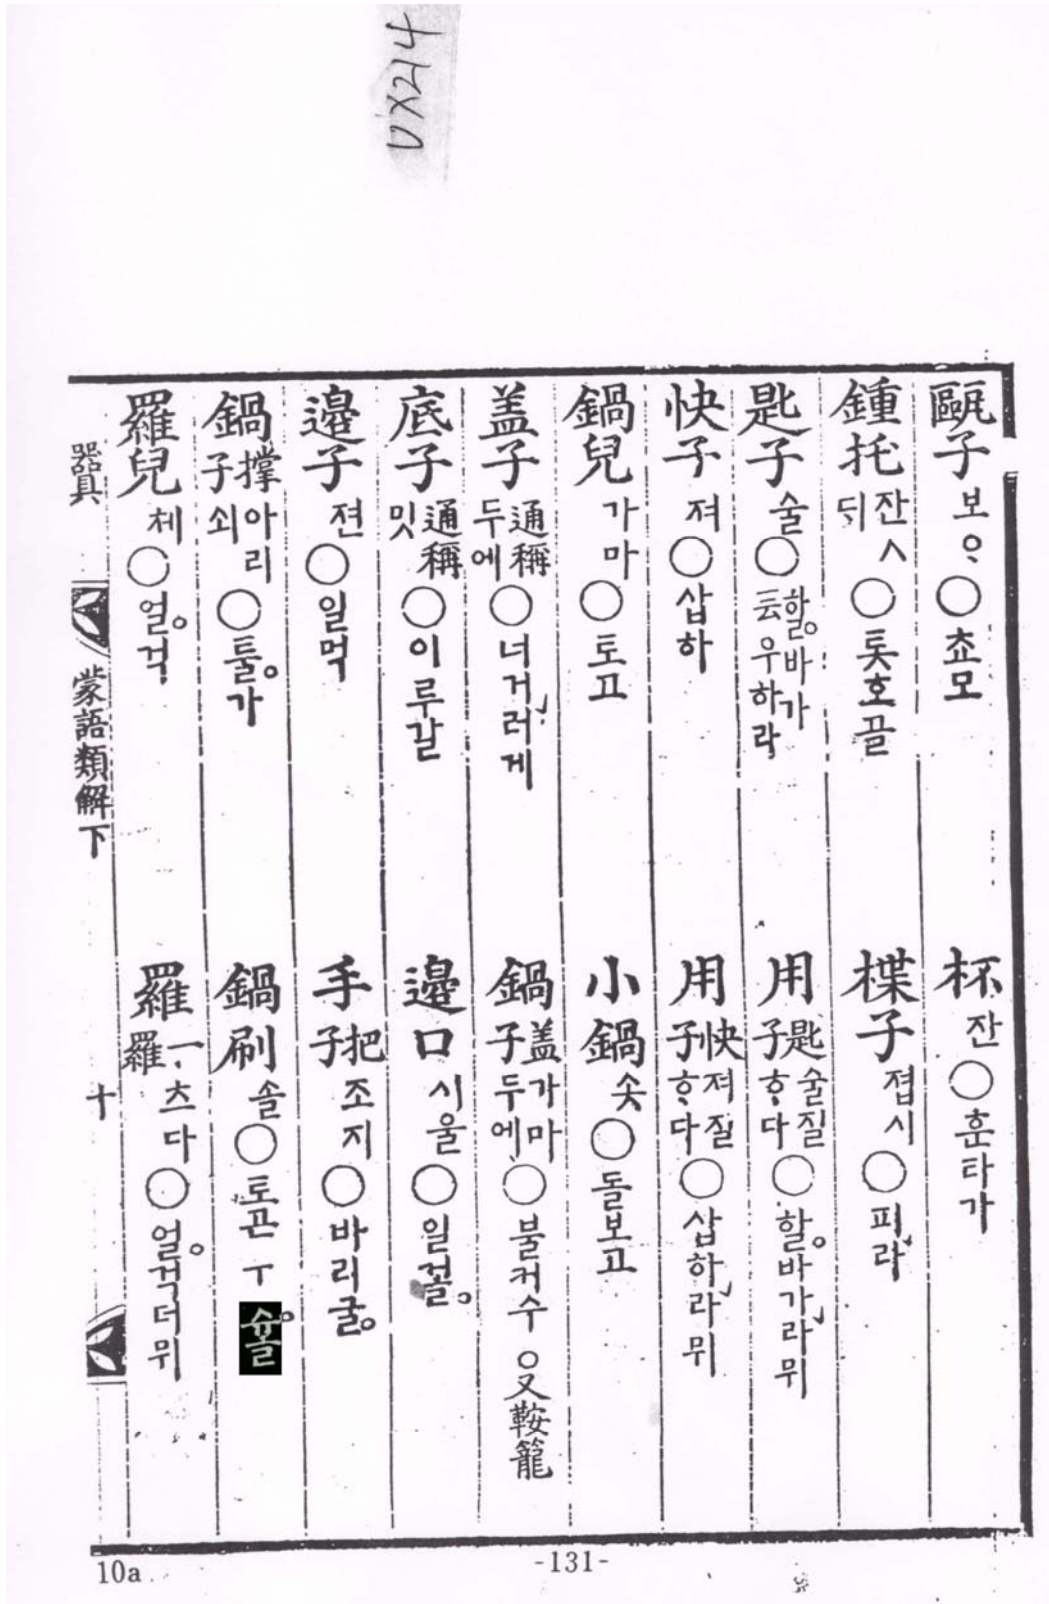 UX214
甌子 보ᄋᆞ ○ 쵸모
杯 잔 ○ 훈타가
鍾托 잔ㅅ듸 ○ 톳호골
楪子 졉시 ○ 피라
匙子 술 ○ 할바가 一云 우하라
用匙子 술질ᄒᆞ다 ○ 할바가라뮈
快子 져 ○ 삽하
用快子 져질ᄒᆞ다 ○ 삽하라뮈
鍋兒 가마 ○ 토고
小鍋 솟 ○ 돌보고
盖子 通稱 두에 ○ 너거러게
鍋盖子 가마두에 ○ 불커수 ○又鞍籠
底子 通稱 밋 ○ 이루갈
邉口 시울 ○ 일걸
邉子 젼 ○ 일먹
手把子 조지 ○ 바리굴
鍋撑子 아리쇠 ○ 툴가
鍋刷 솔 ○ 토곤ㅜ
羅兒 체 ○ 얼걱
羅一羅 츠다 ○ 얼걱더뮈
器具
蒙語類解下
十
10a
-131-